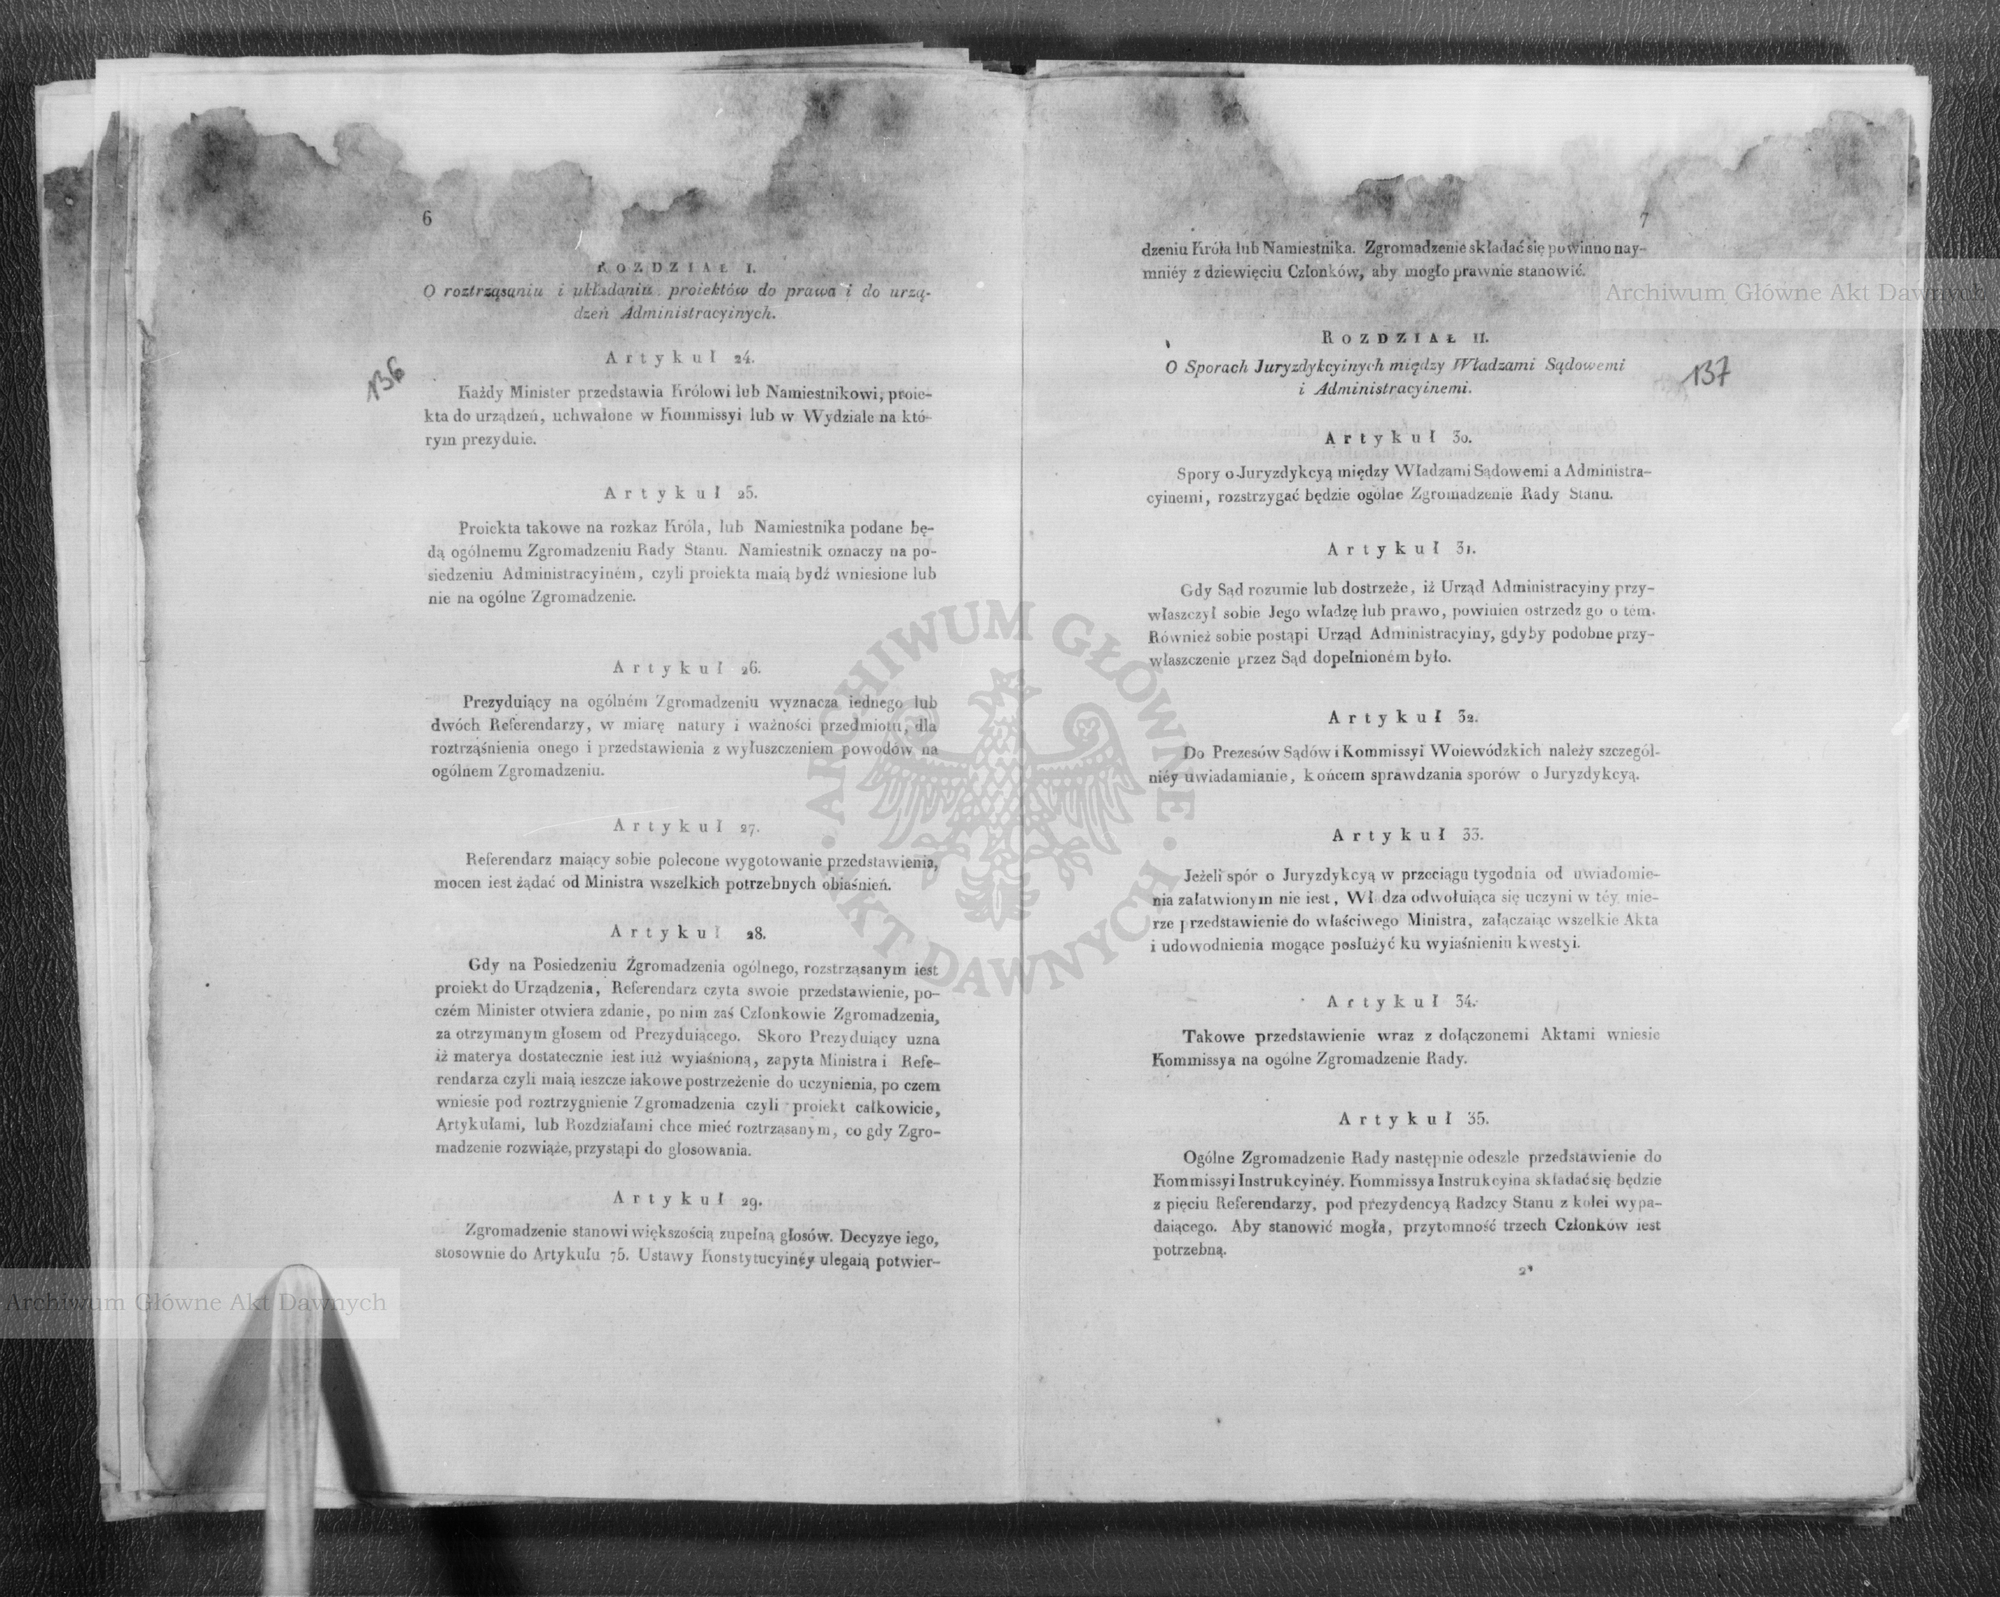 6
ROZDZIAŁ I.
O roztrząsaniu i układaniu proiektów do prawa i do urzą-
dzeń Administracyinych.
Artykuł 24.
136
Każdy Minister przedstawia Królowi lub Namiestnikowi, proie-
kta do urządzeń, uchwalone w Kommissyi lub w Wydziale na któ-
rym prezyduie.
Artykuł 25.
Proiekta takowe na rozkaz Króla, lub Namiestnika podane bę-
dą ogólnemu Zgromadzeniu Rady Stanu. Namiestnik oznaczy na po-
siedzeniu Administracyiném, czyli proiekta maią bydź wniesione lub
nie na ogólne Zgromadzenie.
Artykuł 26.
Prezyduiący na ogólném Zgromadzeniu wyznacza iednego lub
dwóch Referendarzy, w miarę natury i ważności przedmiotu, dla
roztrząśnienia onego i przedstawienia z wyłuszczeniem powodów na
ogólnem Zgromadzeniu.
Artykuł 27.
Referendarz maiący sobie polecone wygotowanie przedstawienia,
mocen iest żądać od Ministra wszelkich potrzebnych obiaśnień.
Artykuł 28.
Gdy na Posiedzeniu Zgromadzenia ogólnego, rozstrząsanym iest
proiekt do Urządzenia, Referendarz czyta swoie przedstawienie, po-
czém Minister otwiera zdanie, po nim zaś Członkowie Zgromadzenia,
za otrzymanym głosem od Prezyduiącego. Skoro Prezyduiący uzna
iż materya dostatecznie iest iuż wyiaśnioną, zapyta Ministra i Refe-
rendarza czyli maią ieszcze iakowe postrzeżenie do uczynienia, po czem
wniesie pod roztrzygnienie Zgromadzenia czyli proiekt całkowicie,
Artykułami, lub Rozdziałami chce mieć roztrząsanym, co gdy Zgro-
madzenie rozwiąże, przystąpi do głosowania.
Artykuł 29.
Zgromadzenie stanowi większością zupełną głosów. Decyzye iego,
stosownie do Artykułu 75. Ustawy Konstytucyinéy ulegaią potwier-
7
dzeniu Króla lub Namiestnika. Zgromadzenie składać się powinno nay-
mniéy z dziewięciu Członków, aby mogło prawnie stanowić.
ROZDZIAŁ II.
O Sporach Juryzdykcyinych między Władzami Sądowemi
i Administracyinemi.
137
Artykuł 30.
Spory o Juryzdykcyą między Władzami Sądowemi a Administra-
cyinemi, rozstrzygać będzie ogólne Zgromadzenie Rady Stanu.
Artykuł 31.
Gdy Sąd rozumie lub dostrzeże, iż Urząd Administracyiny przy-
właszczył sobie Jego władzę lub prawo, powinien ostrzedz go o tém.
Również sobie postąpi Urząd Administracyiny, gdyby podobne przy-
właszczenie przez Sąd dopełnioném było.
Artykuł 32.
Do Prezesów Sądów i Kommissyi Woiewódzkich należy szczegól-
niéy uwiadamianie, końcem sprawdzania sporów o Juryzdykcyą.
Artykuł 33.
Jeżeli spór o Juryzdykcyą w przeciągu tygodnia od uwiadomie-
nia załatwionym nie iest, Wł dza odwołuiąca się uczyni w téy mie-
rze przedstawienie do właściwego Ministra, załączaiąc wszelkie Akta
i udowodnienia mogące posłużyć ku wyiaśnieniu kwestyi.
Artykuł 34.
Takowe przedstawienie wraz z dołączonemi Aktami wniesie
Kommissya na ogólne Zgromadzenie Rady.
Artykuł 35.
Ogólne Zgromadzenie Rady następnie odeszle przedstawienie do
Kommissyi Instrukcyinéy. Kommissya Instrukcyina składać się będzie
z pięciu Referendarzy, pod prezydencyą Radzcy Stanu z kolei wypa-
daiącego. Aby stanowić mogła, przytomność trzech Członków iest
potrzebną.
2*
Archiwum Główne Akt Dawnych
Archiwum Główne Akt Dawnych
ARCHIWUM GŁÓWNE · AKT DAWNYCH ·